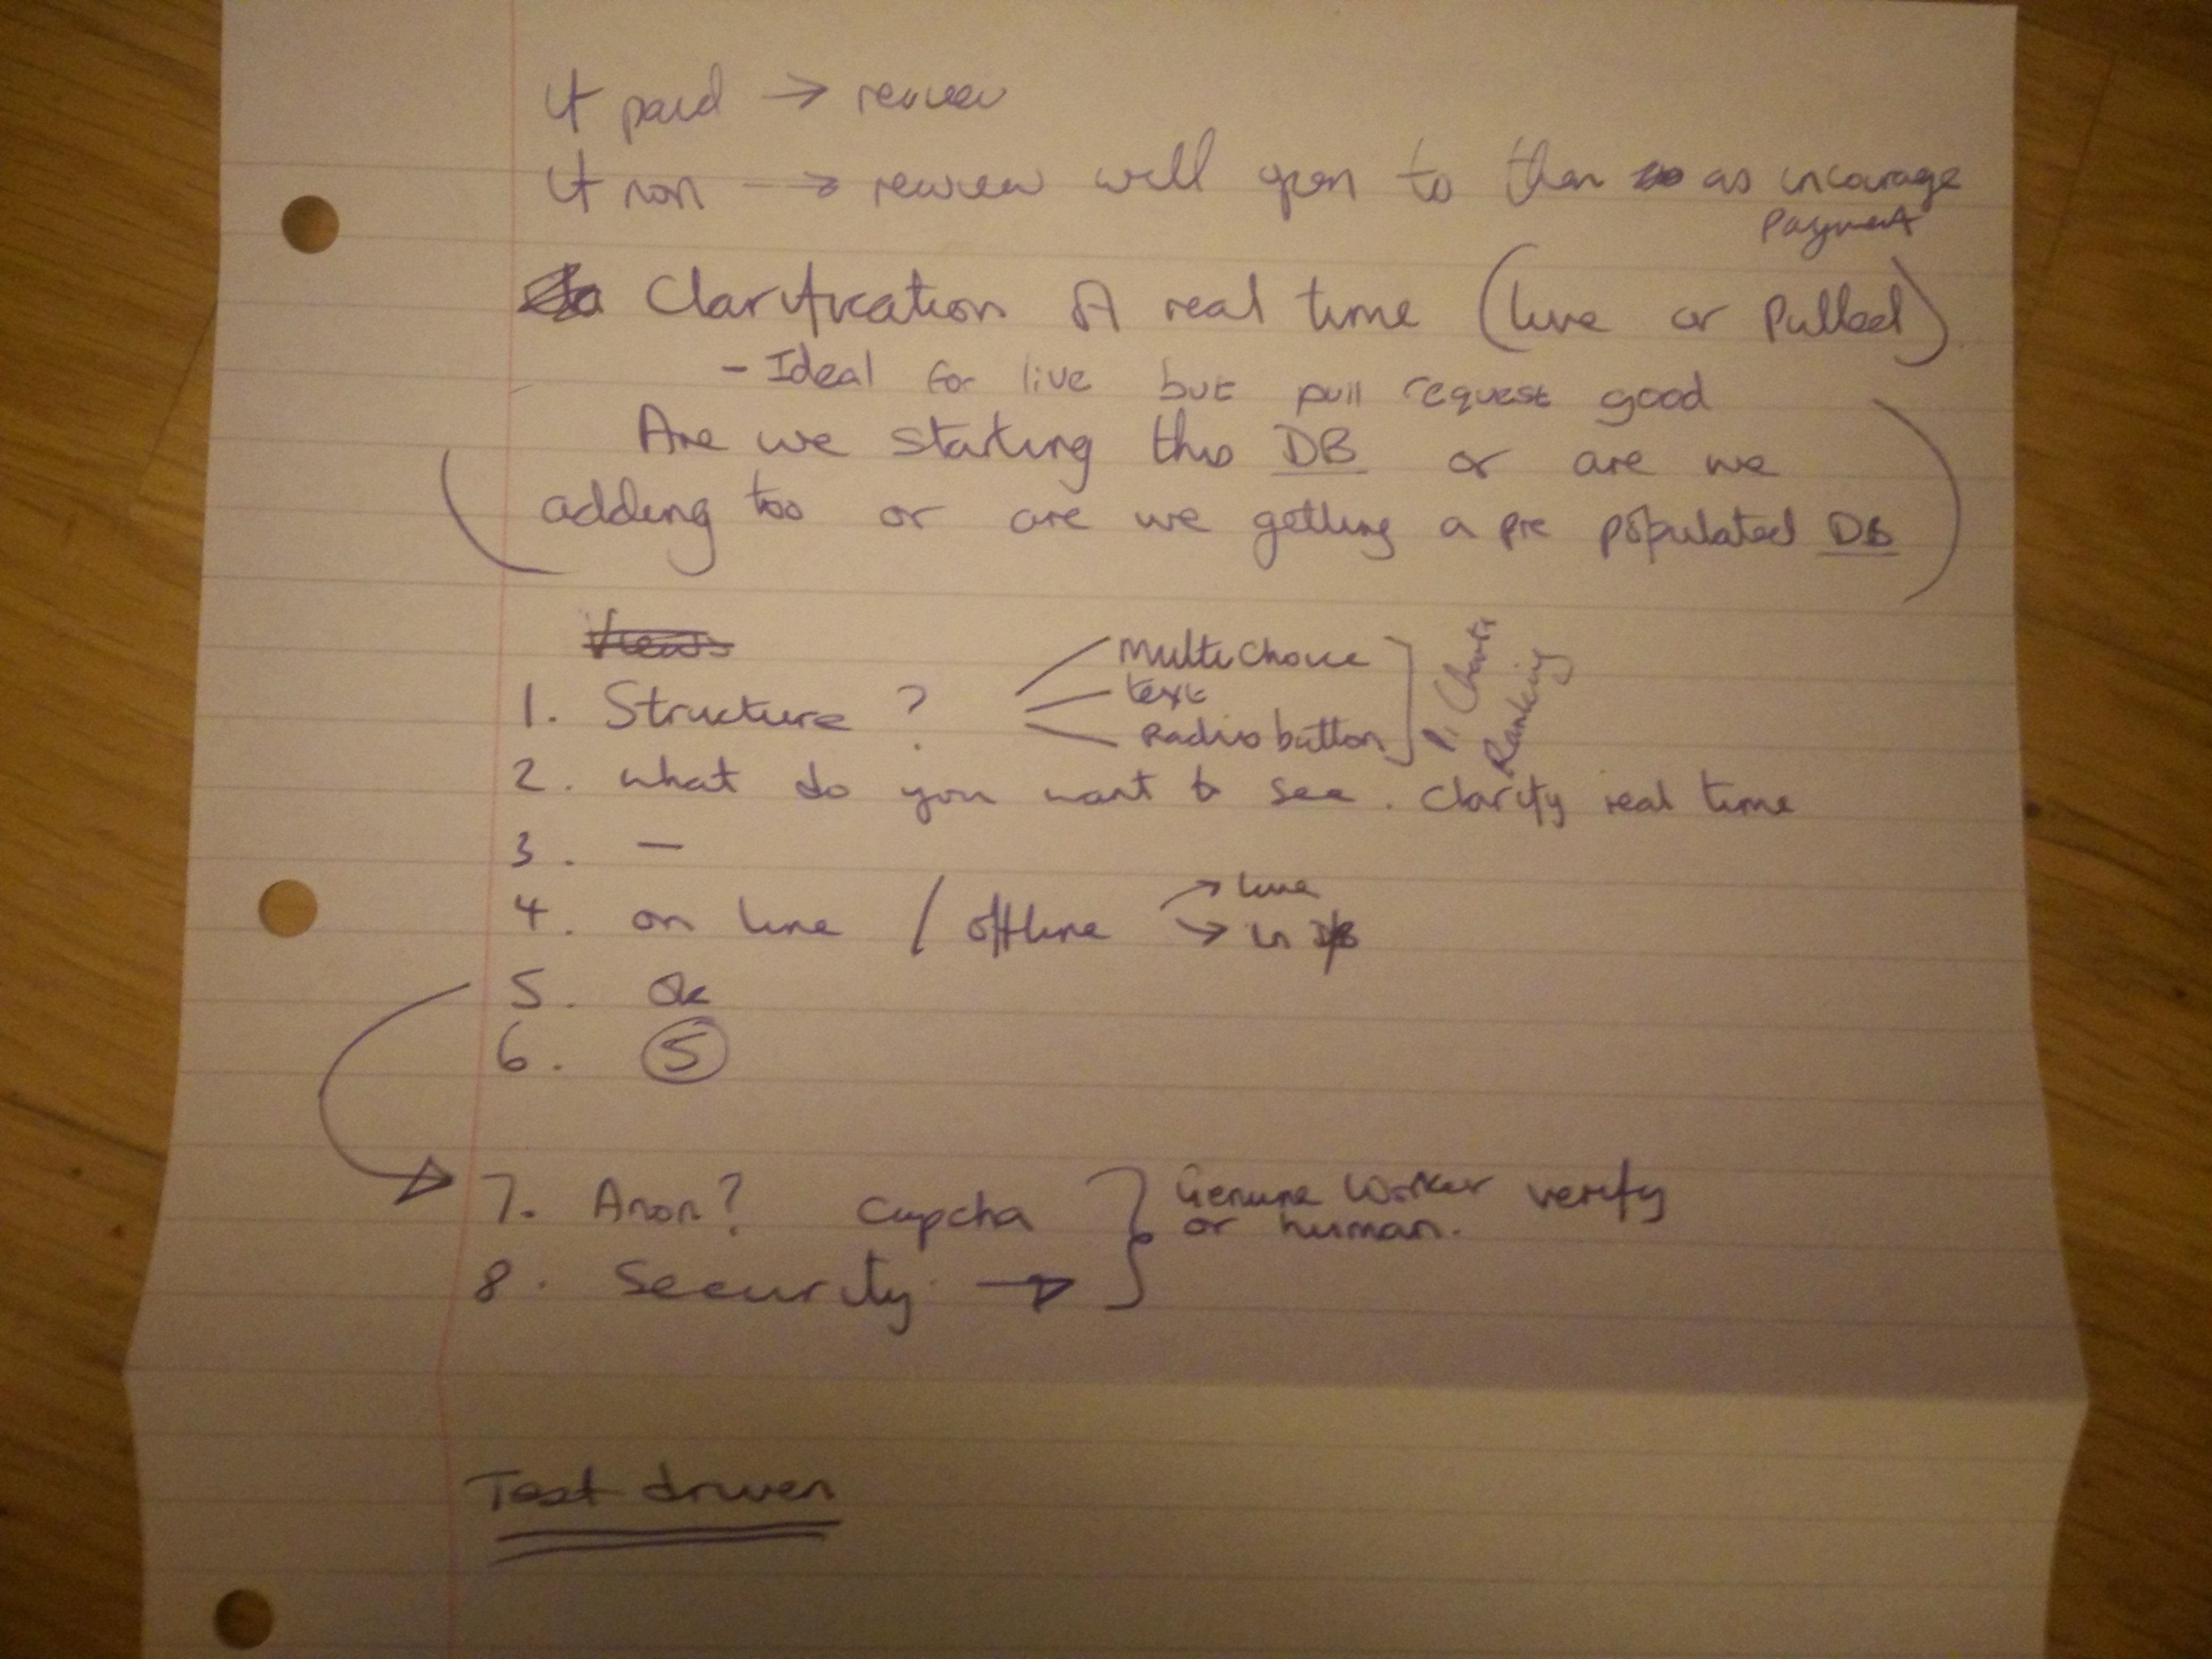 If paid → review
If non → review will open to them as incourage
Payment
Clarification of real time (live or Pulled)
- Ideal for live but pull request good
(Are we starting this DB or are we
adding too or are we getting a pre populated DB)
Views
Multi Choice
1. Structure ? text
Radio button
Pi Charts
Ranking
2. what do you want to see. Clarify real time
3. —
4. on line / offline → live
→ in DB
5. Ok
6. 5
7. Anon? Cupcha } Genuine Worker verify
or human.
8. Security →
Test driven